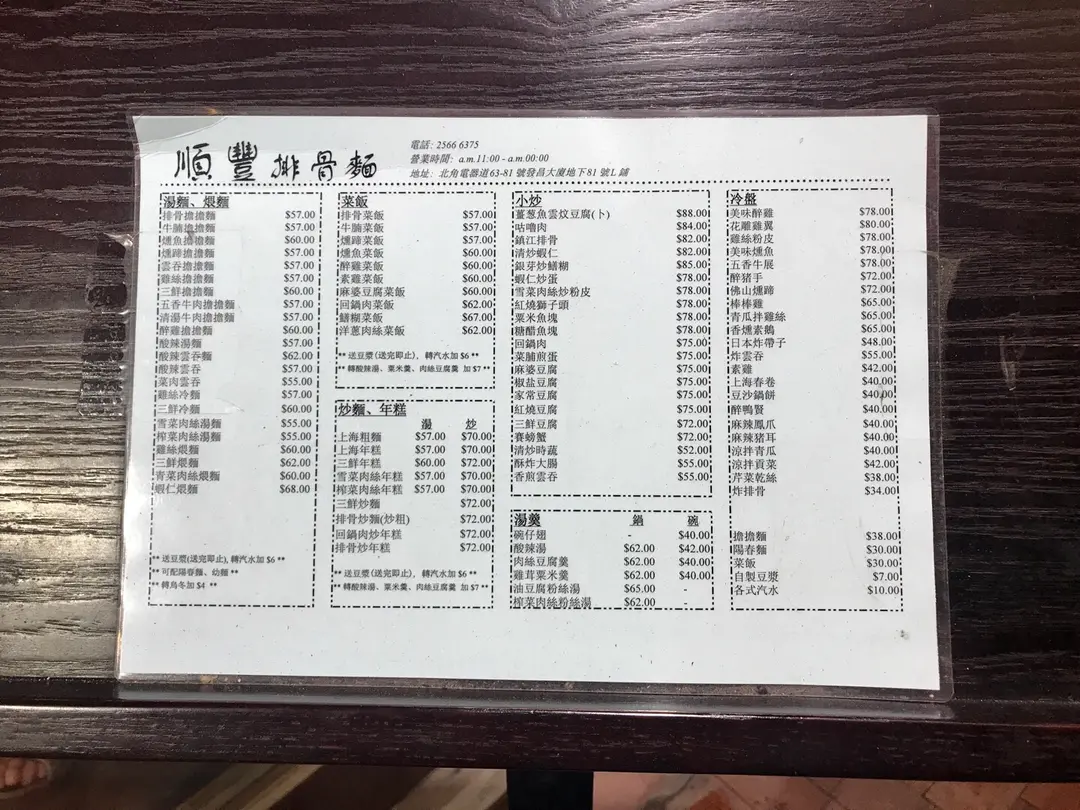 順豐排骨麵
電話: 2566 6375
營業時間: a.m.11:00 - a.m.00:00
地址: 北角電器道63-81 號發昌大廈地下81 號L 鋪
湯麵、煨麵
排骨擔擔麵 $57.00
牛腩擔擔麵 $57.00
燻魚擔擔麵 $60.00
燻蹄擔擔麵 $57.00
雲吞擔擔麵 $57.00
雞絲擔擔麵 $57.00
三鮮擔擔麵 $60.00
五香牛肉擔擔麵 $57.00
清湯牛肉擔擔麵 $57.00
醉雞擔擔麵 $60.00
酸辣湯麵 $57.00
酸辣雲吞麵 $62.00
酸辣雲吞 $57.00
菜肉雲吞 $55.00
雞絲冷麵 $57.00
三鮮冷麵 $60.00
雪菜肉絲湯麵 $55.00
榨菜肉絲湯麵 $55.00
雞絲煨麵 $60.00
三鮮煨麵 $62.00
青菜肉絲煨麵 $60.00
蝦仁煨麵 $68.00
** 送豆漿(送完即止), 轉汽水加 $6 **
** 可配陽春麵、幼麵 **
** 轉烏冬加 $4 **
菜飯
排骨菜飯 $57.00
牛腩菜飯 $57.00
燻蹄菜飯 $57.00
燻魚菜飯 $60.00
醉雞菜飯 $60.00
素雞菜飯 $60.00
麻婆豆腐菜飯 $60.00
回鍋肉菜飯 $62.00
鱔糊菜飯 $67.00
洋蔥肉絲菜飯 $62.00
** 送豆漿(送完即止), 轉汽水加 $6 **
** 轉酸辣湯、粟米羹、肉絲豆腐羹 加 $7 **
炒麵、年糕
湯 炒
上海粗麵 $57.00 $70.00
上海年糕 $57.00 $70.00
三鮮年糕 $60.00 $72.00
雪菜肉絲年糕 $57.00 $70.00
榨菜肉絲年糕 $57.00 $70.00
三鮮炒麵 $72.00
排骨炒麵(炒粗) $72.00
回鍋肉炒年糕 $72.00
排骨炒年糕 $72.00
** 送豆漿(送完即止), 轉汽水加 $6 **
** 轉酸辣湯、粟米羹、肉絲豆腐羹 加 $7 **
小炒
薑蔥魚雲炆豆腐(卜) $88.00
咕嚕肉 $84.00
鎮江排骨 $82.00
清炒蝦仁 $82.00
銀芽炒鱔糊 $85.00
蝦仁炒蛋 $78.00
雪菜肉絲炒粉皮 $78.00
紅燒獅子頭 $78.00
粟米魚塊 $78.00
糖醋魚塊 $78.00
回鍋肉 $75.00
菜脯煎蛋 $75.00
麻婆豆腐 $75.00
椒鹽豆腐 $75.00
家常豆腐 $75.00
紅燒豆腐 $75.00
三鮮豆腐 $72.00
賽螃蟹 $72.00
清炒時蔬 $52.00
酥炸大腸 $55.00
香煎雲吞 $55.00
湯羹
鍋 碗
碗仔翅 - $40.00
酸辣湯 $62.00 $42.00
肉絲豆腐羹 $62.00 $40.00
雞茸粟米羹 $62.00 $40.00
油豆腐粉絲湯 $65.00 -
榨菜肉絲粉絲湯 $62.00 -
冷盤
美味醉雞 $78.00
花雕雞翼 $80.00
雞絲粉皮 $78.00
美味燻魚 $78.00
五香牛展 $78.00
醉豬手 $72.00
佛山燻蹄 $72.00
棒棒雞 $65.00
青瓜拌雞絲 $65.00
香燻素鵝 $65.00
日本炸帶子 $48.00
炸雲吞 $55.00
素雞 $42.00
上海春卷 $40.00
豆沙鍋餅 $40.00
醉鴨腎 $40.00
麻辣鳳爪 $40.00
麻辣豬耳 $40.00
涼拌青瓜 $40.00
涼拌貢菜 $42.00
芹菜乾絲 $38.00
炸排骨 $34.00
擔擔麵 $38.00
陽春麵 $30.00
菜飯 $30.00
自製豆漿 $7.00
各式汽水 $10.00